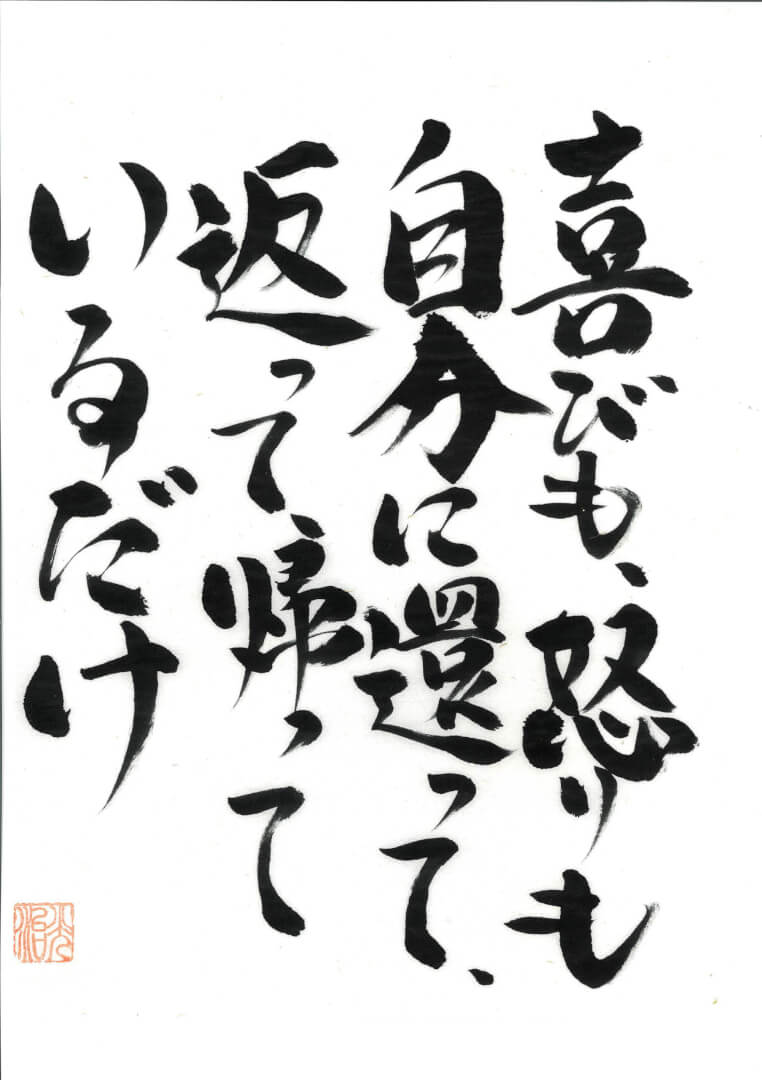 喜びも、怒りも
自分に還って、
返って、帰って
いるだけ